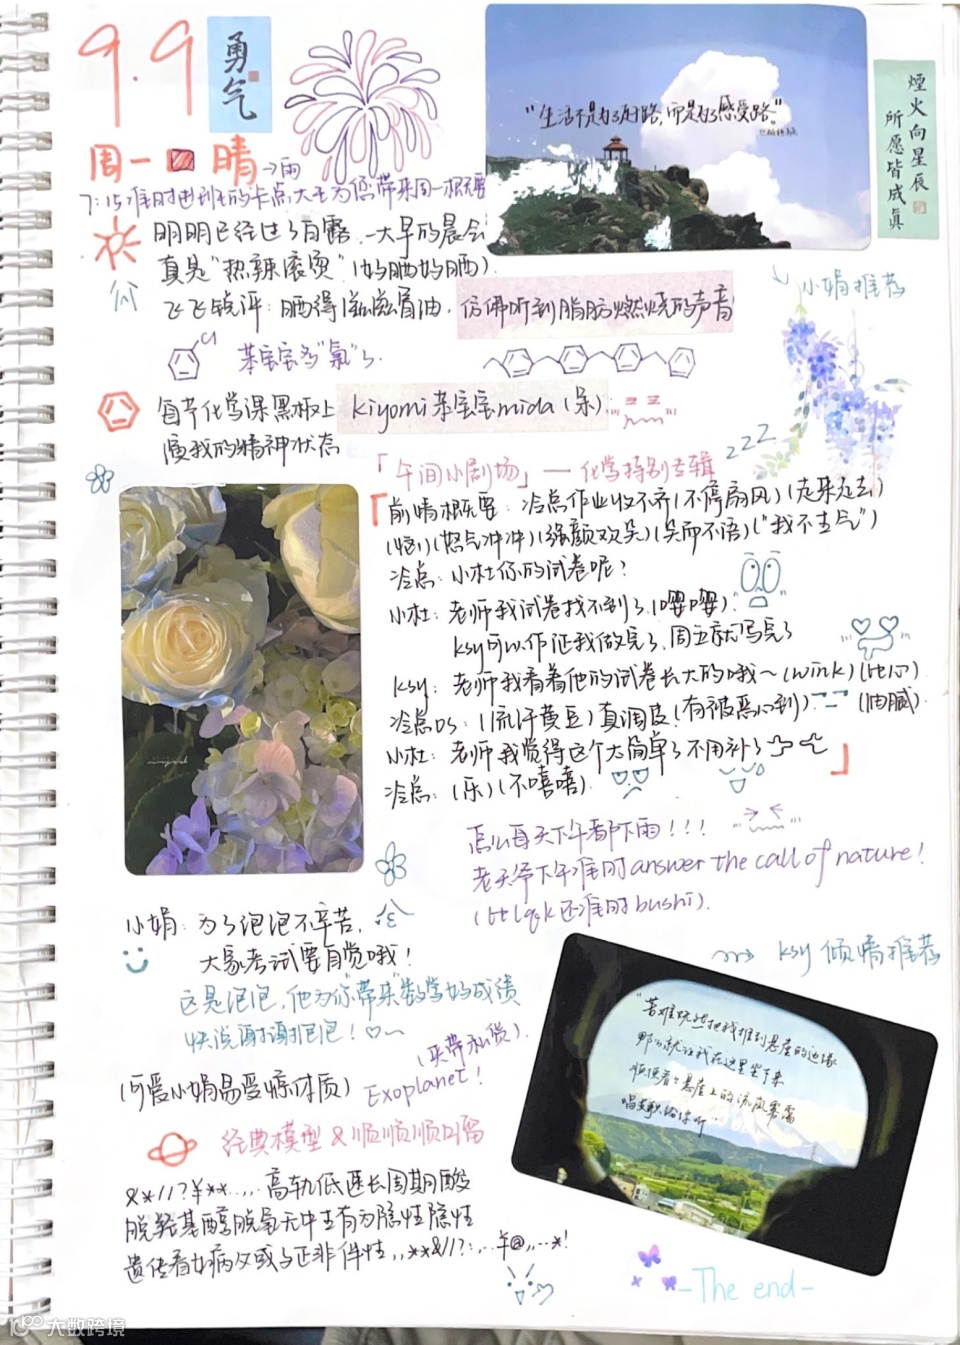 9.9
勇气
周一 晴→雨
"生活不是为了赶路,而是为了感受路。"
煙火向星辰
所愿皆成真
7:15准时出班的卡点大王为您带来周一概要
明明已经过了白露,一大早的晨会
真是"热辣滚烫"(妈晒妈晒)
飞飞锐评:晒得滋滋冒油,仿佛听到脂肪燃烧的声音
小娟推荐
Cl
苯宝宝多"氯"了.
每节化学课黑板上 kiyomi苯宝宝mida(呆)
演我的精神状态
zzz
「午间小剧场」—化学特别专辑
「前情概要:冷总作业收不齐(不停扇风)(走来走去)
(恼)(怒气冲冲)(强颜欢笑)(笑而不语)("我不生气")
冷总:小杜你的试卷呢?
小杜:老师我试卷找不到了(嘤嘤).
ksy可以作证我做完了,周五就写完了
ksy:老师我看着他的试卷长大的哦~(wink)(比心)
冷总os:(流汗黄豆)真调皮!(有被恶心到).(油腻).
小杜:老师我觉得这个太简单了不用补了」
冷总:(乐)(不嘻嘻).
怎么每天下午都下雨!!!
老天爷下午准时answer the call of nature!
(ttlqk还准时bushi).
小娟:为了泡泡不辛苦,
大家考试要自觉哦!
这是泡泡,他为你带来数学好成绩
快说谢谢泡泡!♡~
(夹带私货).
(可爱小娟易受惊体质)
Exoplanet!
ksy 倾情推荐
"苦难既然把我推到悬崖的边缘
那么就让我在这里坐下来
顺便看看悬崖上的流岚雾霭
唱支歌给你听"
经典模型&顺顺顺口溜
&*//?¥**....高轨低速长周期酸
脱羟基醇脱氢无中生有为隐性隐性
遗传看女病父或子正非伴性,,**&//?:...¥@,,..*!
-The end-
大数跨境